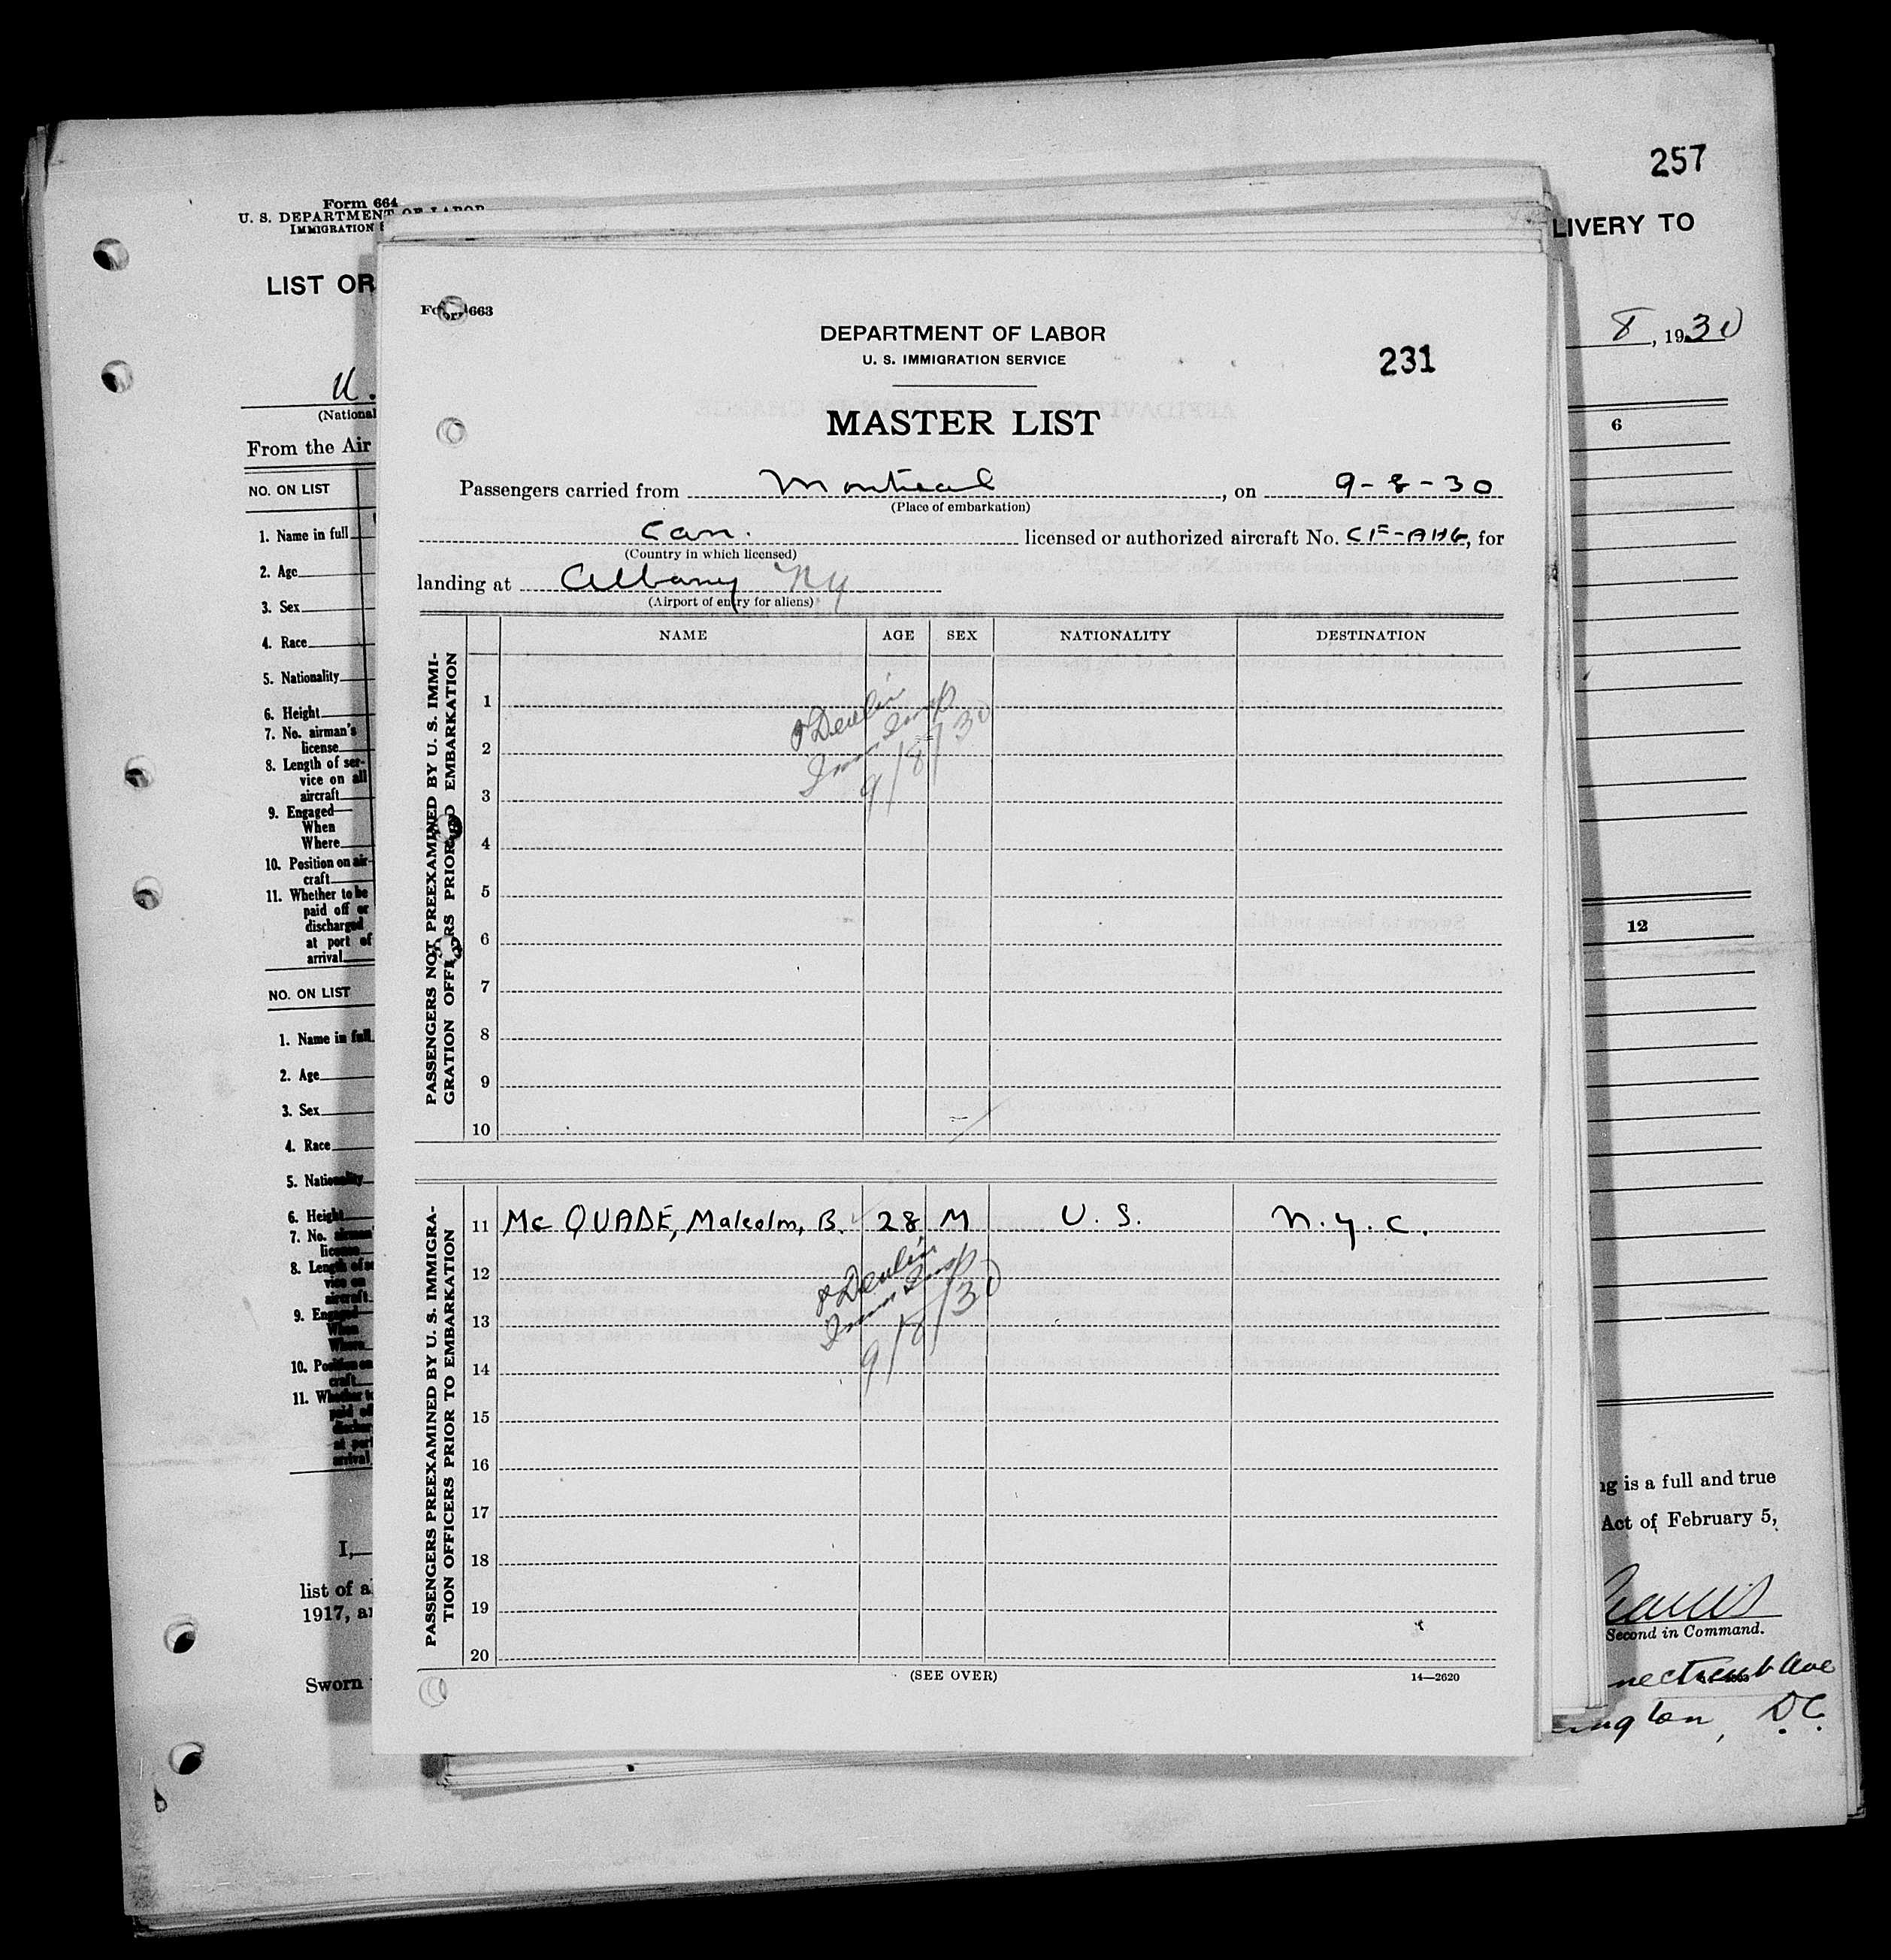 257
Form 664
U. S. DEPARTMENT OF LABOR
IMMIGRATION
LIVERY TO
LIST OR
8, 1930
U.
(National
From the Air
6
NO. ON LIST
1. Name in full
2. Age
3. Sex
4. Race
5. Nationality
6. Height
7. No. airman's
license
8. Length of ser-
vice on all
aircraft
9. Engaged—
When
Where
10. Position on air-
craft
11. Whether to be
paid off or
discharged
at port of
arrival
12
NO. ON LIST
1. Name in full
2. Age
3. Sex
4. Race
5. Nationality
6. Height
7. No. airman's
license
8. Length of se
vice on
aircraft
9. Engaged
When
Where
10. Position on
craft
11. Whether to
paid of
discha
at port
arrival
I,
list of a
1917, a
Sworn
ng is a full and true
Act of February 5,
Second in Command.
necticut Ave
ington, D.C.
Form 663
DEPARTMENT OF LABOR
U. S. IMMIGRATION SERVICE
231
MASTER LIST
Passengers carried from Montreal, on 9-8-30
(Place of embarkation)
Can. licensed or authorized aircraft No. CF-AHG, for
(Country in which licensed)
landing at Albany NY
(Airport of entry for aliens)
NAME AGE SEX NATIONALITY DESTINATION
PASSENGERS NOT PREEXAMINED BY U. S. IMMI-
GRATION OFFICERS PRIOR TO EMBARKATION
1
2
3
4
5
6
7
8
9
10
Devlin
Imm Insp
9/8/30
PASSENGERS PREEXAMINED BY U. S. IMMIGRA-
TION OFFICERS PRIOR TO EMBARKATION
11 Mc QUADE, Malcolm, B. 28 M U. S. N.Y.C.
12
13
14
15
16
17
18
19
20
Devlin
Imm Insp
9/8/30
(SEE OVER)
14—2620